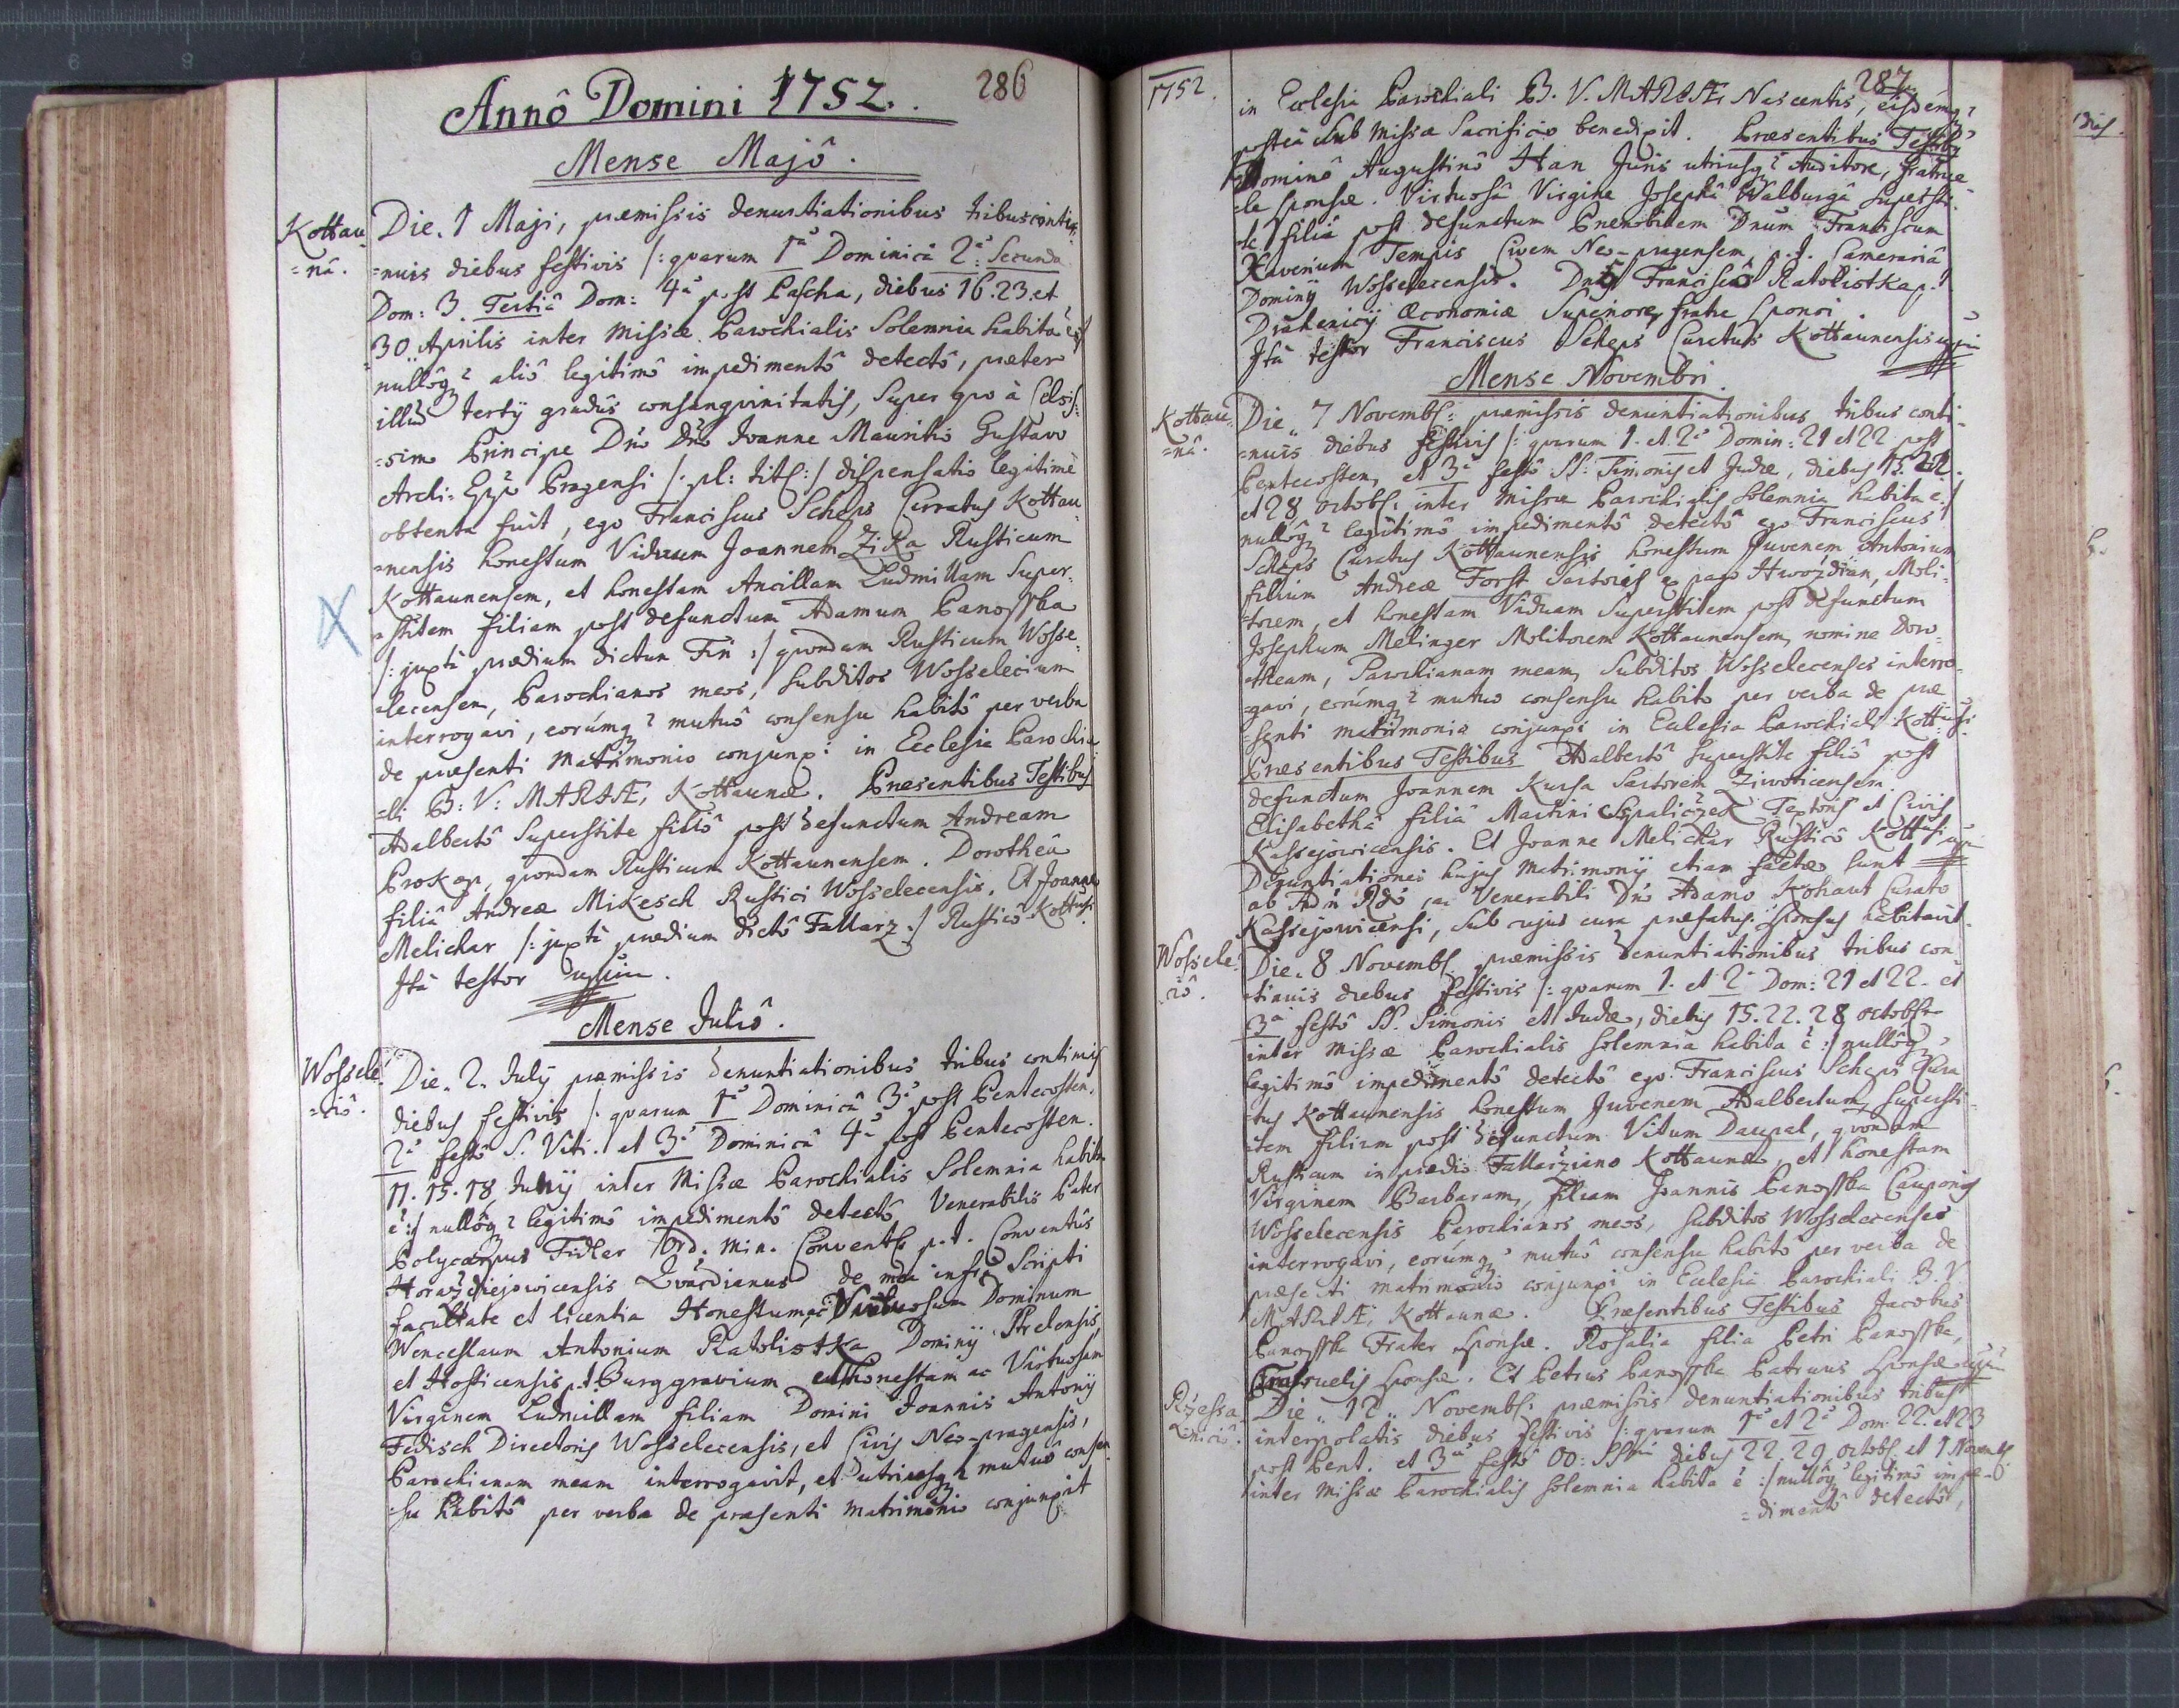 286
Annô Domini 1752.
Mense Majô.
Kottau=
=nâ.
Die. 1 Maji, præmissis denuntiationibus tribus conti=
=nuis diebus festivis /: quarum 1a Dominicâ 2a: Secunda
Dom: 3. Tertiâ Dom: 4a post Pascha, diebus 16. 23. et
30 Aprilis inter Missæ Parochialis Solemnia habita ē:/
nullôq3 aliô legitimô impedimentô detectô, præter
illud tertÿ gradûs consanguinitatis, super quo à Celsis=
=simo Principe Dno Dno Joanne Mauritio Gustavo
Archi=Eppo Pragensi /: pl: tit: :/ dispensatio legitimè
obtenta fuit, ego Franciscus Scheps Curatus Kottau=
=nensis honestum Viduum Joannem Zika Rusticum
Kottaunensem, et honestam Ancillam Ludmillam Super=
=stitem filiam post defunctum Adamum Panosska
/: juxtà prædium dictum Fin :/ quondam Rusticum Wosse=
=lecensem, Parochianos meos, subditos Wosselecium
interrogavi, eorúmq3 mutuô consensu habitô per verba
de præsenti Matrimonio conjunxi in Ecclesia Parochia=
=li B: V: MARIÆ, Kottaunæ. Præsentibus Testibus
Adalbertô Superstite filiô post defunctum Andream
Prokop, quondam Rusticum Kottaunensem. Dorotheâ
filiâ Andreæ Mikesch Rustici Wosselecensis. Et Joanne
Melichar /: juxtà prædium dictô Fallarz :/ Rusticô Kottnsi
Ità testor
Mense Juliô.
Wossele=
=ciô.
Die. 2. Julÿ præmissis denuntiationibus tribus continuis
diebus festivis /: quarum 1a Dominicâ 3a post Pentecosten.
2a festô S. Viti. et 3a Dominicâ 4a post Pentecosten.
11. 15. 18 Junÿ inter Missæ Parochialis Solemnia habita
ē :/ nullôq3 legitimô impedimentô detectô, Venerabilis Pater
Polycarpus Fidler Ord. Min. Convent: p. t. Conventûs
Horazdiejowicensis Quardianus de mea infra scripti
facultate et licentia Honestum ac Virtuosum Dominum
Wenceslaum Antonium Ratolistka Dominÿ Strelensis,
et Hosticensis p. t. Burggravium et Honestam ac Virtuosam
Virginem Ludmillam filiam Domini Joannis Antonÿ
Fedisch Directoris Wosselecensis, et Civis Neo-pragensis,
Parochianam meam interrogavit, et utriusq3 mutuô consen=
=su habitô per verba de præsenti Matrimonio conjunxit
1752.
287
in Ecclesia Parochiali B. V. MARIÆ, Nascentis, eisdémq3
posteà sub Missæ Sacrificio benedixit. Præsentibus Testibus
Dominô Augustinô Han Juris utriusq3 Auditore, fratrue=
=le sponsæ. Virtuosâ Virgine Josephâ Walburgâ supersti=
=te filiâ post defunctum Prænobilem Dnum Franciscum
Xaverium Tempis Civem Neo-pragensem, p. t. Camerariâ
Dominÿ Wosselecensis. Dno Franciscô Ratolistka p. t.
Drahenicÿ Oeconomiæ Superiore, fratre Sponsi.
Ità testor Franciscus Scheps Curatus Kottaunensis
Mense Novembri.
Kottau=
=nâ.
Die 7 Novemb: præmissis denuntiationibus tribus conti=
=nuis diebus festivis /: quarum 1. et 2a Domin: 21 et 22 post
Pentecosten, et 3a festô SS. Simonis et Judæ, diebus 15. 22.
et 28 octob: inter Missæ Parochialis Solemnia habita ē :/
nullôq3 legitimô impedimentô detectô ego Franciscus
Scheps Curatus Kottaunensis honestum Juvenem Antonium
filium Andreæ Forst Sartoris ex pago Hwozdian, Moli=
=torem, et honestam Viduam Superstitem post defunctum
Josephum Melinger Molitorem Kottaunensem, nomine Doro=
=theam, Parochianam meam, subditos Wosselecenses interro=
=gavi, eorúmq3 mutuo consensu habito per verba de præ=
=senti matrimonio conjunxi in Ecclesia Parochiali Kottnsi.
Præsentibus Testibus Adalbertô superstite filiô post
defunctum Joannem Kursa Sartorem Ziwoticensem.
Elisabethâ filiâ Martini Spaliczek Textoris et Civis
Kassejowicensis. Et Joanne Melichar Rusticô Kottnsi
Denuntiationes hujus Matrimonÿ etiam factæ sunt
ab Adm Rdo ac Venerabili Dno Adamo Kohaut Curato
Kassejowicensi, sub cujus cura præfatus Sponsus habitavit.
Wossele=
=ciô.
Die. 8 Novemb. præmissis denuntiationibus tribus con=
=tinuis diebus festivis /: quarum 1. et 2a Dom: 21 et 22. et
3a festô SS. Simonis et Judæ, diebus 15. 22. 28 octobr
inter Missæ Parochialis solemnia habita ē :/ nullôq3
legitimô impedimentô detectô ego Franciscus Scheps Cura=
=tus Kottaunensis honestum Juvenem Adalbertum, supersti=
=tem filium post defunctum Vitum Daupal, quondam
Rusticum in prædio Fallarziano Kottaunæ, et honestam
Virginem Barbaram, filiam Joannis Panosska Cauponis
Wosselecensis Parochianos meos, subditos Wosselecenses
interrogavi, eorúmq3 mutuô consensu habitô per verba de
præsenti matrimonio conjunxi in Ecclesia Parochiali B. V.
MARIÆ, Kottaunæ. Præsentibus Testibus Jacobus
Panosska Frater sponsæ. Rosalia filia Petri Panosska,
Fratruelis sponsæ. Et Petrus Panosska Patruus sponsæ
Rzessa=
Die „ 12 „ Novemb: præmissis denuntiationibus tribus
interpolatis diebus festivis /: quarum 1a et 2a Dom. 22. et 23
post Pent. et 3a festô OO: SSm diebus 22. 29 octob: et 1 Novemb
inter Missæ Parochialis solemnia habita ē :/ nullôq3 legitimô impe=
=dimentô detectô,